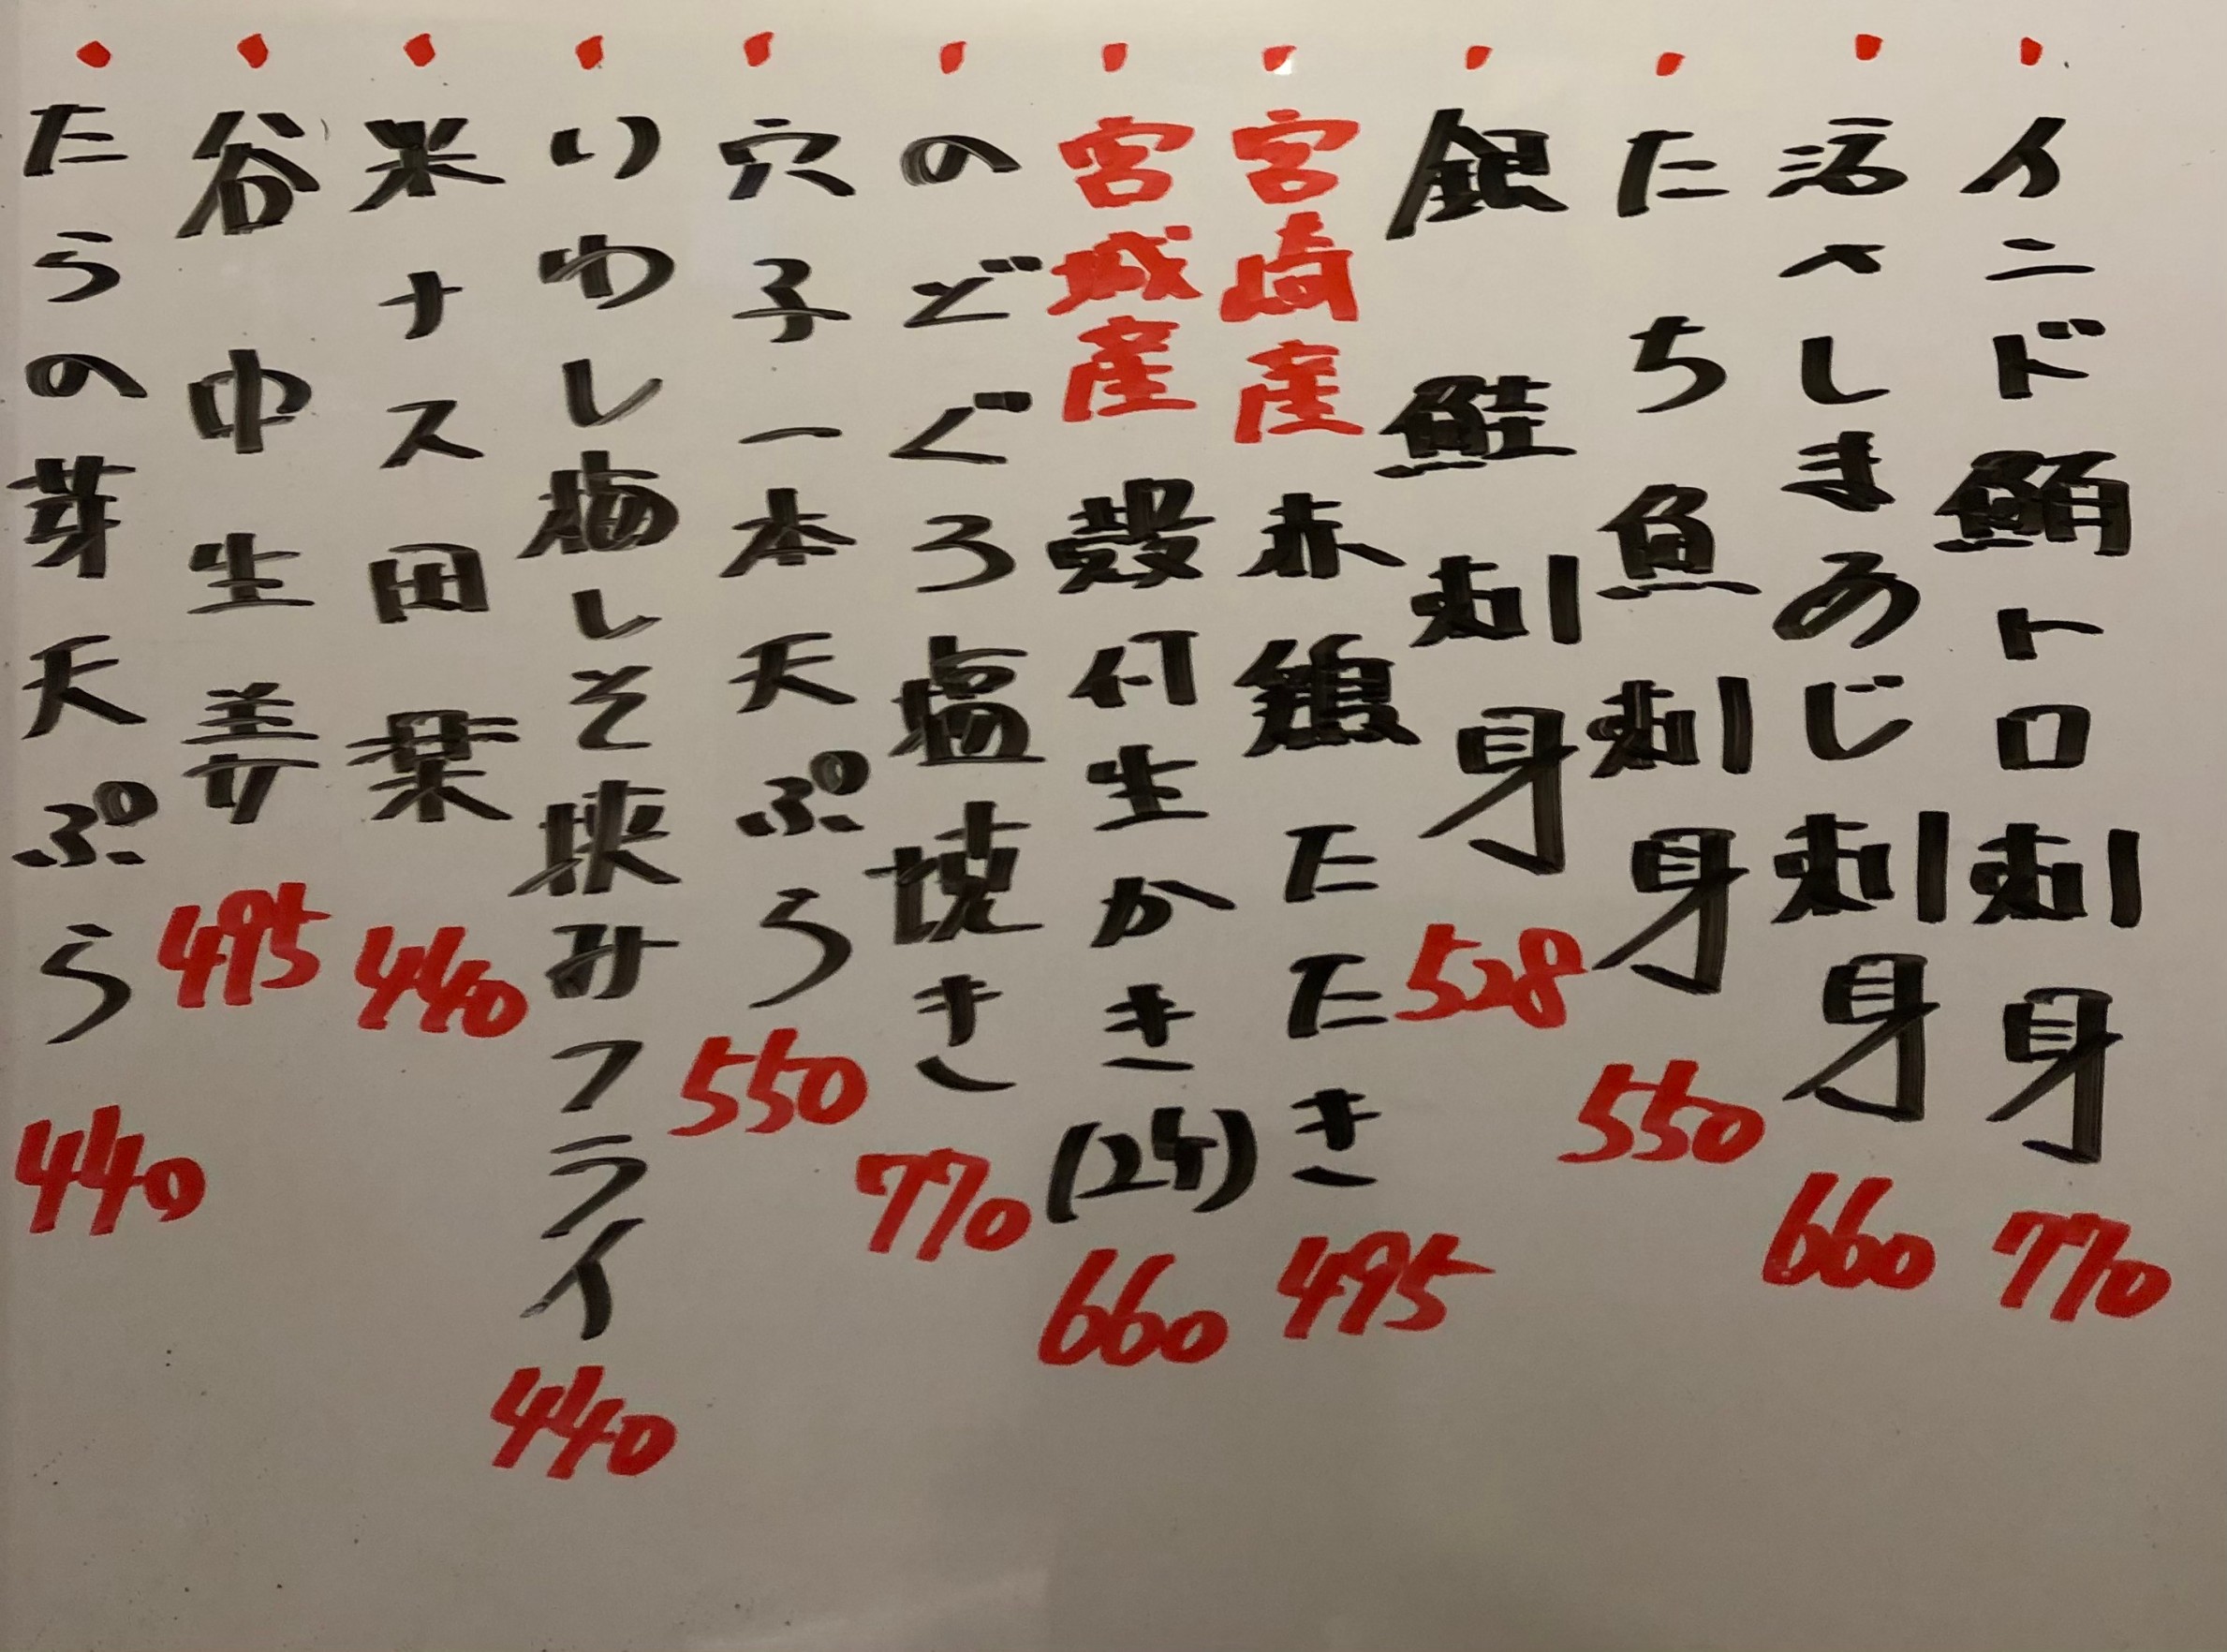 ・インド鮪トロ刺身 770
・活〆しまあじ刺身 660
・たち魚刺身 550
・銀鮭刺身 528
・宮崎産赤鶏たたき 495
・宮城産殻付生かき(2ケ) 660
・のどぐろ塩焼き 770
・穴子一本天ぷら 550
・いわし梅しそ挟みフライ 440
・米ナス田楽 440
・谷中生姜 495
・たらの芽天ぷら 440